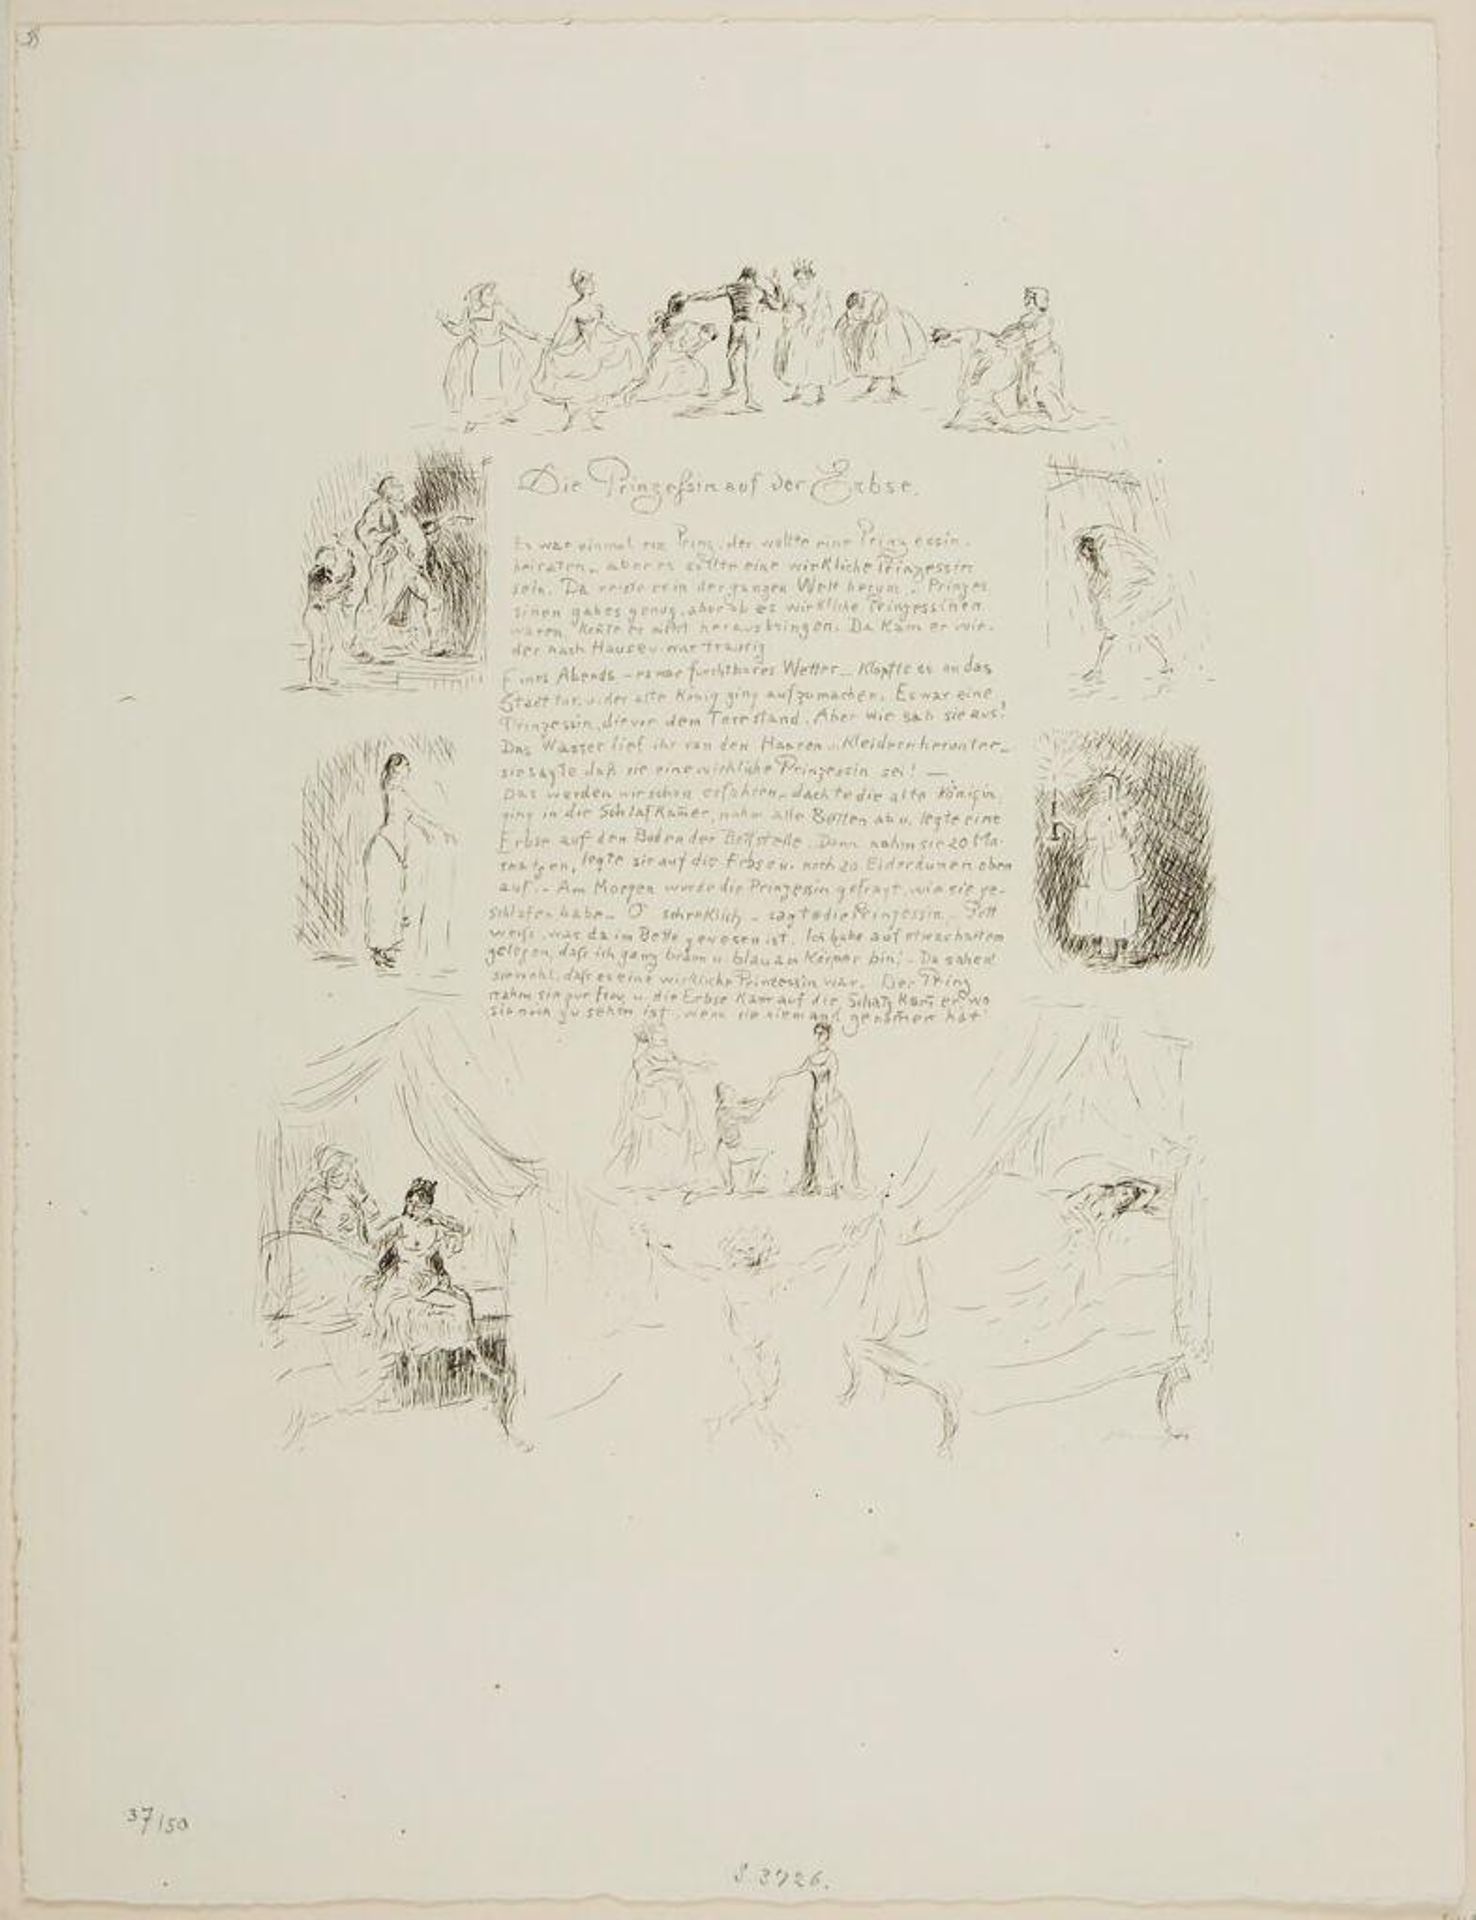 Die Prinzessin auf der Erbse.
Es war einmal ein Prinz, der wollte eine Prinzessin
heiraten, aber es sollte eine wirkliche Prinzessin
sein. Da reiste er in der ganzen Welt herum. Prinzes
sinen gab es genug, aber ob es wirkliche Prinzessinen
waren, konte er nicht herausbringen. Da kam er wie-
der nach Hause u. war traurig
Eines Abends – es war furchtbares Wetter – klopfte es an das
Stadttor, u. der alte König ging aufzumachen. Es war eine
Prinzessin, die vor dem Tore stand. Aber wie sah sie aus!
Das Wasser lief ihr von den Haaren u. Kleidern herunter –
sie sagte daß sie eine wirkliche Prinzessin sei! —
Das werden wir schon erfahren – dachte die alte Königin,
ging in die Schlafkamer, nahm alle Betten ab u. legte eine
Erbse auf den Boden der Bettstelle. Dann nahm sie 20 Ma-
tratzen, legte sie auf die Erbse u. noch 20 Eiderdunen oben
auf. – Am Morgen wurde die Prinzessin gefragt, wie sie ge-
schlafen habe – O schreklich – sagte die Prinzessin – Gott
weiß, was da im Bette gewesen ist. Ich habe auf etwas hartem
gelegen, daß ich ganz braun u. blau am Körper bin! – Da sahen
sie wohl, daß es eine wirkliche Prinzessin war. Der Prinz
nahm sie zur Frau, u. die Erbse kam auf die Schatzkamer, wo
sie noch zu sehen ist, wenn sie niemand genomen hat
37/50
S. 3726.